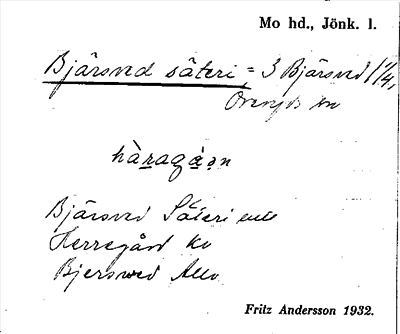 Mo hd., Jönk. l.
Bjärsved säteri, = 3 Bjärsved 1/4,
hàragå̀ən
Bjärsved Säteri
Herregård Kv
Bjersved Allo
Fritz Andersson 1932.